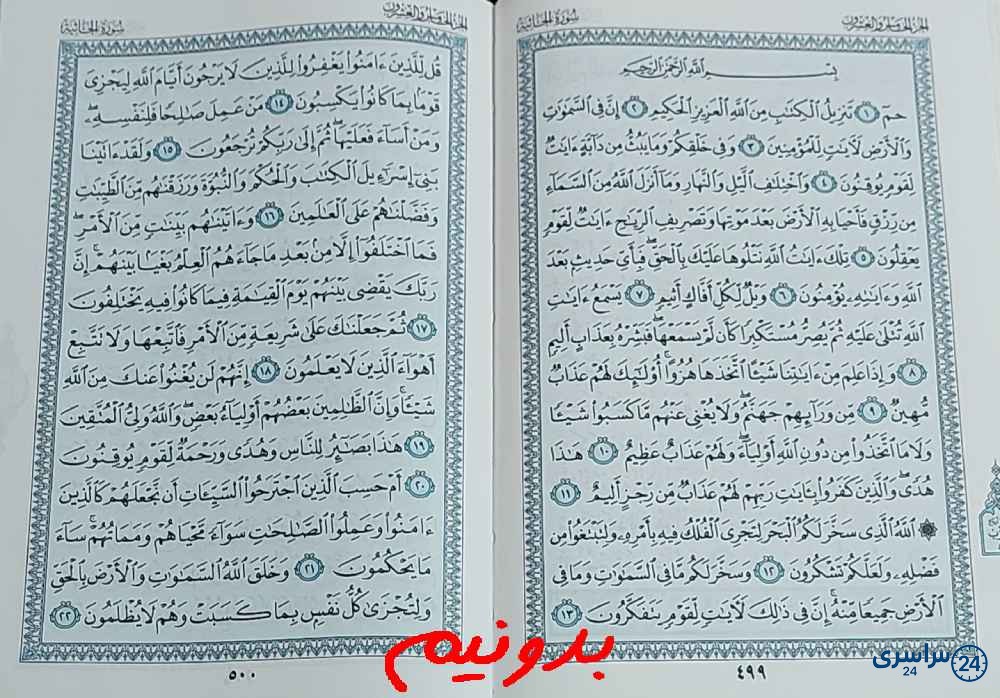 الجزء الخامس والعشرون
سورة الجاثية
بسم الله الرحمن الرحيم
حمٓ ١ تَنزِيلُ ٱلْكِتَٰبِ مِنَ ٱللَّهِ ٱلْعَزِيزِ ٱلْحَكِيمِ ٢ إِنَّ فِى ٱلسَّمَٰوَٰتِ
وَٱلْأَرْضِ لَءَايَٰتٍ لِّلْمُؤْمِنِينَ ٣ وَفِى خَلْقِكُمْ وَمَا يَبُثُّ مِن دَآبَّةٍ ءَايَٰتٌ
لِّقَوْمٍ يُوقِنُونَ ٤ وَٱخْتِلَٰفِ ٱلَّيْلِ وَٱلنَّهَارِ وَمَآ أَنزَلَ ٱللَّهُ مِنَ ٱلسَّمَآءِ
مِن رِّزْقٍ فَأَحْيَا بِهِ ٱلْأَرْضَ بَعْدَ مَوْتِهَا وَتَصْرِيفِ ٱلرِّيَٰحِ ءَايَٰتٌ لِّقَوْمٍ
يَعْقِلُونَ ٥ تِلْكَ ءَايَٰتُ ٱللَّهِ نَتْلُوهَا عَلَيْكَ بِٱلْحَقِّ فَبِأَىِّ حَدِيثٍۭ بَعْدَ
ٱللَّهِ وَءَايَٰتِهِۦ يُؤْمِنُونَ ٦ وَيْلٌ لِّكُلِّ أَفَّاكٍ أَثِيمٍ ٧ يَسْمَعُ ءَايَٰتِ
ٱللَّهِ تُتْلَىٰ عَلَيْهِ ثُمَّ يُصِرُّ مُسْتَكْبِرًا كَأَن لَّمْ يَسْمَعْهَا فَبَشِّرْهُ بِعَذَابٍ أَلِيمٍ
٨ وَإِذَا عَلِمَ مِنْ ءَايَٰتِنَا شَيْـًٔا ٱتَّخَذَهَا هُزُوًا أُو۟لَٰٓئِكَ لَهُمْ عَذَابٌ
مُّهِينٌ ٩ مِّن وَرَآئِهِمْ جَهَنَّمُ وَلَا يُغْنِى عَنْهُم مَّا كَسَبُوا۟ شَيْـًٔا
وَلَا مَا ٱتَّخَذُوا۟ مِن دُونِ ٱللَّهِ أَوْلِيَآءَ وَلَهُمْ عَذَابٌ عَظِيمٌ ١٠ هَٰذَا
هُدًى وَٱلَّذِينَ كَفَرُوا۟ بِـَٔايَٰتِ رَبِّهِمْ لَهُمْ عَذَابٌ مِّن رِّجْزٍ أَلِيمٌ ١١
۞ ٱللَّهُ ٱلَّذِى سَخَّرَ لَكُمُ ٱلْبَحْرَ لِتَجْرِىَ ٱلْفُلْكُ فِيهِ بِأَمْرِهِۦ وَلِتَبْتَغُوا۟ مِن
فَضْلِهِۦ وَلَعَلَّكُمْ تَشْكُرُونَ ١٢ وَسَخَّرَ لَكُم مَّا فِى ٱلسَّمَٰوَٰتِ وَمَا فِى
ٱلْأَرْضِ جَمِيعًا مِّنْهُ إِنَّ فِى ذَٰلِكَ لَءَايَٰتٍ لِّقَوْمٍ يَتَفَكَّرُونَ ١٣
٤٩٩
الجزء الخامس والعشرون
سورة الجاثية
قُل لِّلَّذِينَ ءَامَنُوا۟ يَغْفِرُوا۟ لِلَّذِينَ لَا يَرْجُونَ أَيَّامَ ٱللَّهِ لِيَجْزِىَ
قَوْمًۢا بِمَا كَانُوا۟ يَكْسِبُونَ ١٤ مَنْ عَمِلَ صَٰلِحًا فَلِنَفْسِهِۦ
وَمَنْ أَسَآءَ فَعَلَيْهَا ثُمَّ إِلَىٰ رَبِّكُمْ تُرْجَعُونَ ١٥ وَلَقَدْ ءَاتَيْنَا
بَنِىٓ إِسْرَٰٓءِيلَ ٱلْكِتَٰبَ وَٱلْحُكْمَ وَٱلنُّبُوَّةَ وَرَزَقْنَٰهُم مِّنَ ٱلطَّيِّبَٰتِ
وَفَضَّلْنَٰهُمْ عَلَى ٱلْعَٰلَمِينَ ١٦ وَءَاتَيْنَٰهُم بَيِّنَٰتٍ مِّنَ ٱلْأَمْرِ
فَمَا ٱخْتَلَفُوٓا۟ إِلَّا مِنۢ بَعْدِ مَا جَآءَهُمُ ٱلْعِلْمُ بَغْيًۢا بَيْنَهُمْ إِنَّ
رَبَّكَ يَقْضِى بَيْنَهُمْ يَوْمَ ٱلْقِيَٰمَةِ فِيمَا كَانُوا۟ فِيهِ يَخْتَلِفُونَ
١٧ ثُمَّ جَعَلْنَٰكَ عَلَىٰ شَرِيعَةٍ مِّنَ ٱلْأَمْرِ فَٱتَّبِعْهَا وَلَا تَتَّبِعْ
أَهْوَآءَ ٱلَّذِينَ لَا يَعْلَمُونَ ١٨ إِنَّهُمْ لَن يُغْنُوا۟ عَنكَ مِنَ ٱللَّهِ
شَيْـًٔا وَإِنَّ ٱلظَّٰلِمِينَ بَعْضُهُمْ أَوْلِيَآءُ بَعْضٍ وَٱللَّهُ وَلِىُّ ٱلْمُتَّقِينَ
١٩ هَٰذَا بَصَٰٓئِرُ لِلنَّاسِ وَهُدًى وَرَحْمَةٌ لِّقَوْمٍ يُوقِنُونَ
٢٠ أَمْ حَسِبَ ٱلَّذِينَ ٱجْتَرَحُوا۟ ٱلسَّيِّـَٔاتِ أَن نَّجْعَلَهُمْ كَٱلَّذِينَ
ءَامَنُوا۟ وَعَمِلُوا۟ ٱلصَّٰلِحَٰتِ سَوَآءً مَّحْيَاهُمْ وَمَمَاتُهُمْ سَآءَ
مَا يَحْكُمُونَ ٢١ وَخَلَقَ ٱللَّهُ ٱلسَّمَٰوَٰتِ وَٱلْأَرْضَ بِٱلْحَقِّ
وَلِتُجْزَىٰ كُلُّ نَفْسٍۭ بِمَا كَسَبَتْ وَهُمْ لَا يُظْلَمُونَ ٢٢
٥٠٠
بدونیم
سراسری 24
24